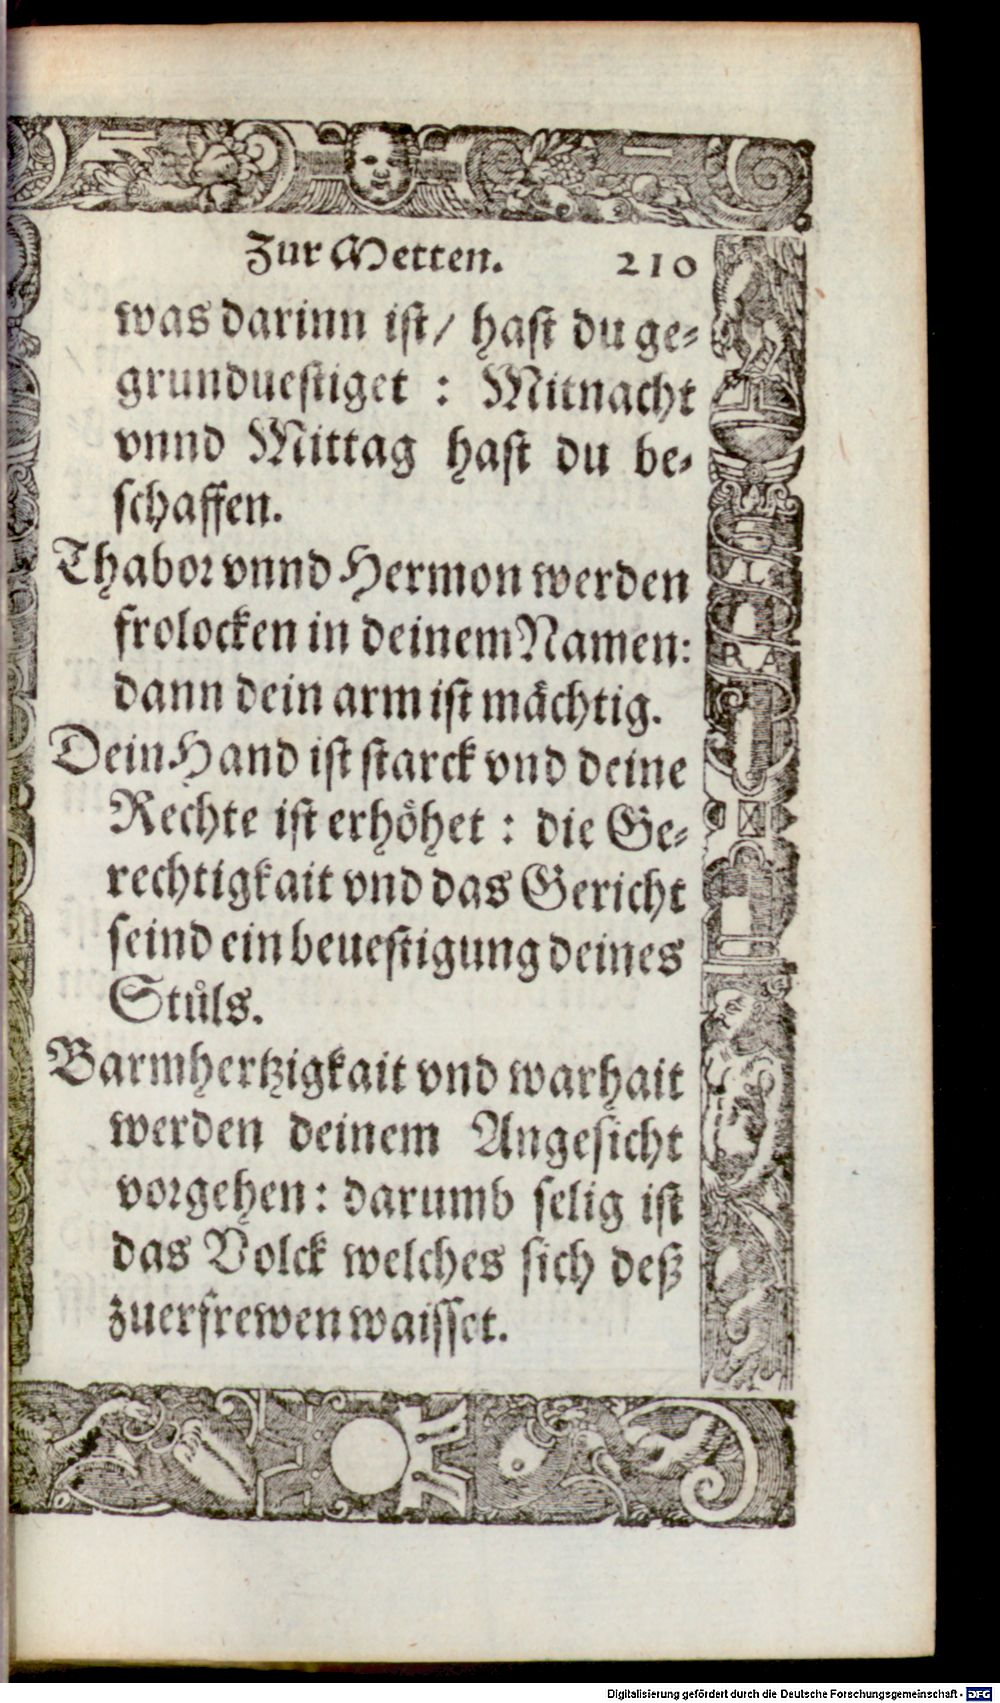 Zur Metten. 210
was darinn ist/ hast du ge-
grunduestiget : Mitnacht
vnnd Mittag hast du be-
schaffen.
Thabor vnnd Hermon werden
frolocken in deinem Namen:
dann dein arm ist mächtig.
Dein Hand ist starck vnd deine
Rechte ist erhöhet : die Ge-
rechtigkait vnd das Gericht
seind ein beuestigung deines
Stůls.
Barmhertzigkait vnd warhait
werden deinem Angesicht
vorgehen: darumb selig ist
das Volck welches sich deß
zuerfrewen waisset.
L
RA
Digitalisierung gefördert durch die Deutsche Forschungsgemeinschaft - DFG